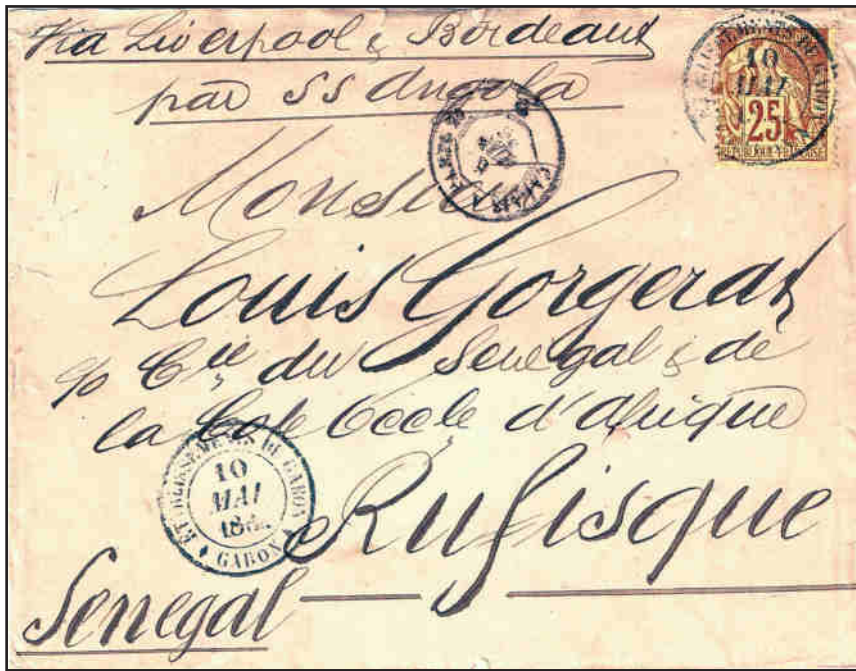 Via Liverpool & Bordeaux
par SS Angola
ETABLISSEMENTS DU GABON
10
MAI
25
REPUBLIQUE FRANCAISE
CALAIS A PARIS
Monsieur
Louis Gorgerat
c/o Cie du Senegal & de
la Cote Occle d'Afrique
ETABLISSEMENTS DU GABON
10
MAI
GABON
Rufisque
Senegal